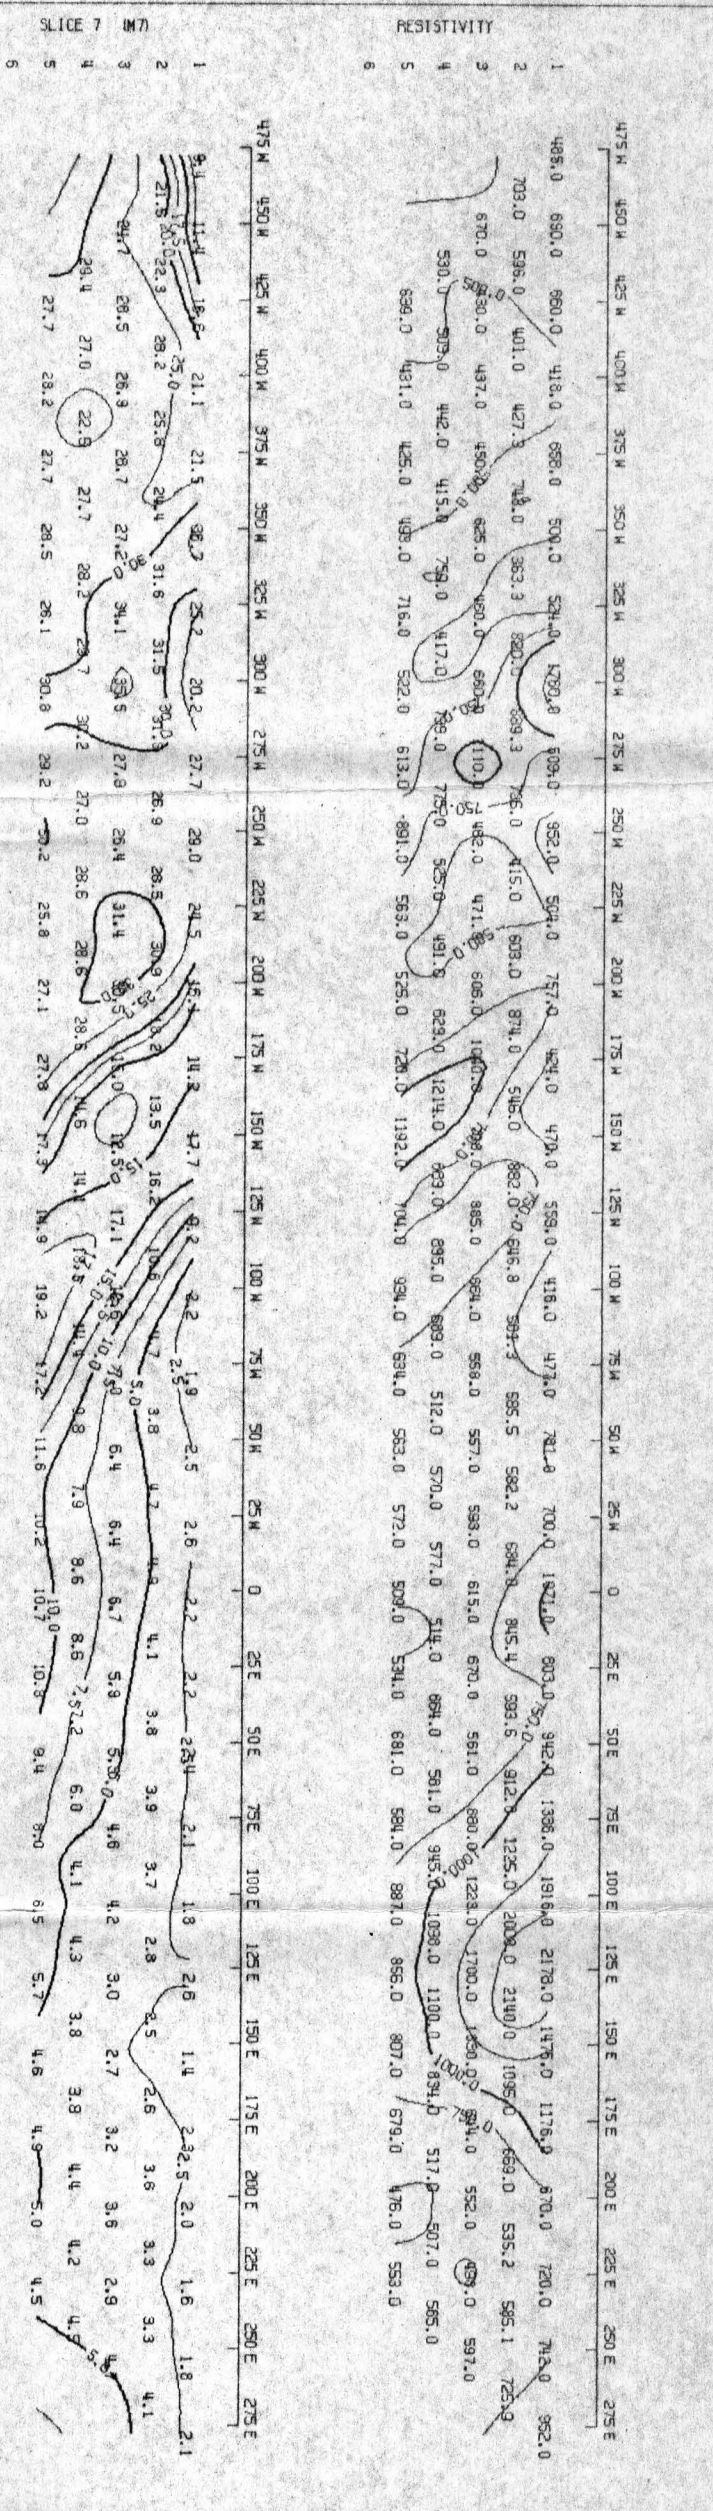 RESISTIVITY
475 W 450 W 425 W 400 W 375 W 350 W 325 W 300 W 275 W 250 W 225 W 200 W 175 W 150 W 125 W 100 W 75 W 50 W 25 W 0 25 E 50 E 75 E 100 E 125 E 150 E 175 E 200 E 225 E 250 E 275 E
1 485.0 690.0 660.0 418.0 658.0 500.0 524.0 4760.0 609.0 952.0 504.0 757.0 424.0 470.0 559.0 418.0 477.0 781.8 700.0 1071.0 803.0 942.0 1386.0 1916.0 2178.0 1476.0 1176.0 670.0 720.0 743.0 952.0
2 703.0 596.0 401.0 427.3 748.0 363.3 820.0 689.3 796.0 415.0 603.0 874.0 546.0 882.0 646.8 501.3 585.5 582.2 684.0 845.4 593.5 912.0 1225.0 2009.0 2140.0 1095.0 669.0 535.2 585.1 725.9
3 670.0 430.0 437.0 450.0 625.0 480.0 660.0 1110.0 482.0 471.0 606.0 1040.0 885.0 664.0 558.0 557.0 593.0 615.0 670.0 561.0 880.0 1223.0 1700.0 552.0 597.0
4 530.0 509.0 442.0 415.0 759.0 417.0 799.0 775.0 525.0 491.0 629.0 1214.0 895.0 689.0 512.0 570.0 577.0 514.0 664.0 581.0 945.0 1098.0 1100.0 834.0 517.0 507.0 565.0
5 639.0 431.0 425.0 493.0 716.0 522.0 613.0 891.0 563.0 525.0 728.0 1192.0 704.0 934.0 634.0 563.0 572.0 509.0 534.0 681.0 584.0 887.0 856.0 807.0 679.0 476.0 553.0
6
750.0
1000.0
SLICE 7 (M7)
475 W 450 W 425 W 400 W 375 W 350 W 325 W 300 W 275 W 250 W 225 W 200 W 175 W 150 W 125 W 100 W 75 W 50 W 25 W 0 25 E 50 E 75 E 100 E 125 E 150 E 175 E 200 E 225 E 250 E 275 E
1 9.4 11.4 18.6 21.1 21.5 25.2 20.2 27.7 29.0 24.5 14.2 17.7 2.2 1.9 2.5 2.6 2.2 2.2 2.1 1.8 2.6 1.4 2.0 1.6 1.8 2.1
2 21.5 22.3 28.2 25.8 24.4 31.6 31.5 26.9 28.5 30.9 13.5 16.2 10.6 4.7 3.8 4.7 4.9 4.1 3.8 3.9 3.7 2.8 2.5 2.6 3.6 3.3 3.3 4.1
3 24.7 28.5 26.9 28.7 27.2 34.1 35.6 27.8 26.4 31.4 15.0 12.5 17.1 7.0 6.4 6.4 6.7 5.9 4.6 4.2 3.0 2.7 3.2 3.6 2.9
4 29.4 27.0 22.9 27.7 28.2 30.2 27.0 28.6 28.6 28.5 14.6 14.1 9.8 7.9 8.6 8.6 7.2 6.0 4.1 4.3 3.8 3.8 4.4 4.2 4.5
5 27.7 28.2 27.7 28.5 26.1 30.8 29.2 30.2 25.8 27.1 27.8 17.3 18.9 19.2 17.2 11.6 10.2 10.7 10.8 9.4 8.0 6.5 5.7 4.6 4.9 5.0 4.5
6
25.0
30.0
10.0
5.0
2.5
10.0